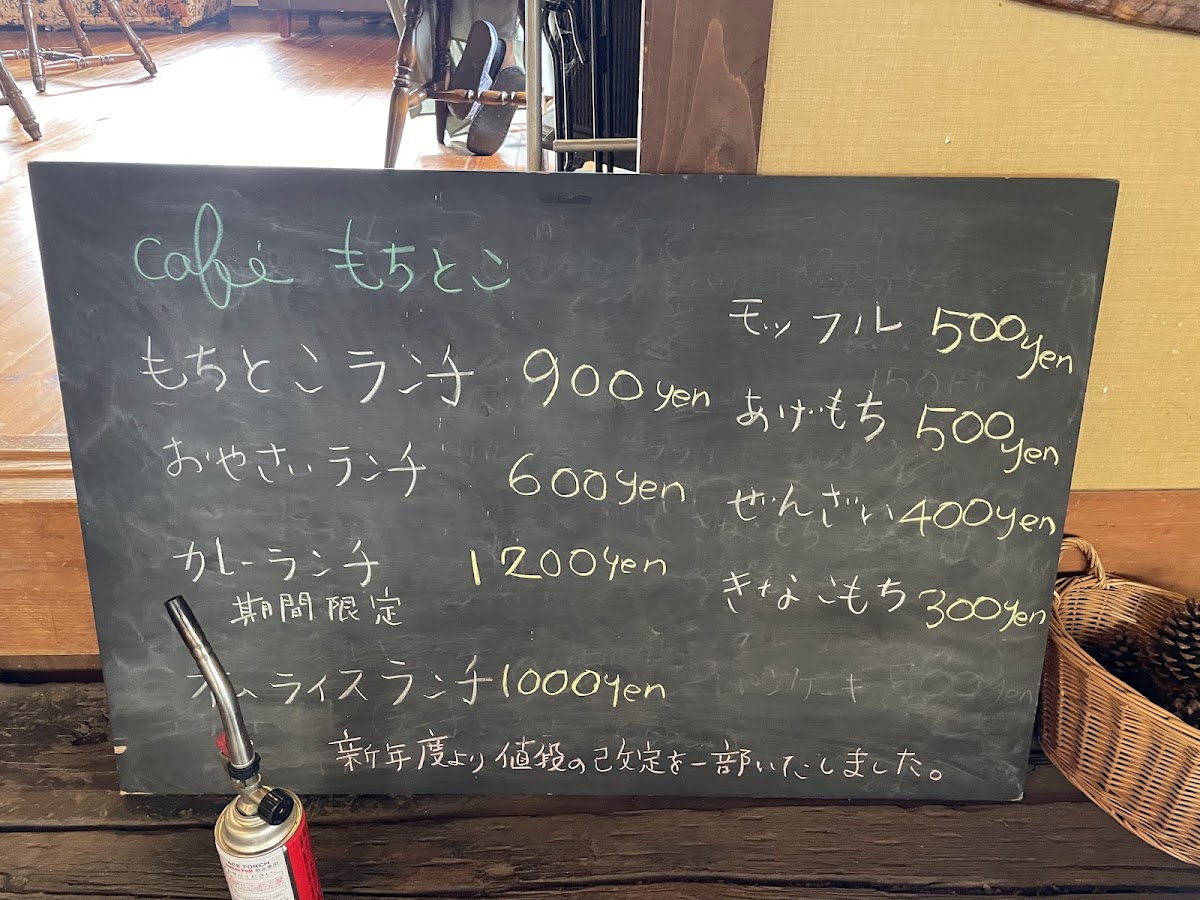 Café もちとこ
もちとこランチ 900yen
おやさいランチ 600yen
カレーランチ 1200yen
期間限定
オムライスランチ 1000yen
モッフル 500yen
あげもち 500yen
ぜんざい 400yen
きなこもち 300yen
新年度より値段の改定を一部いたしました。